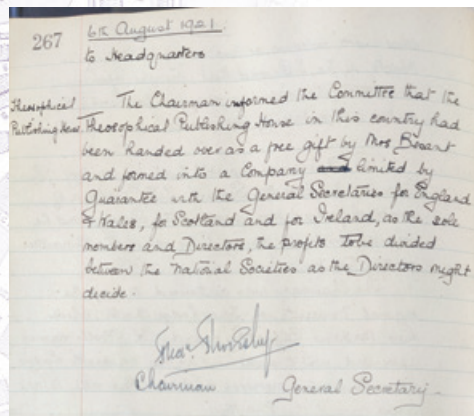 267
6th August 1921
to Headquarters
Theosophical The Chairman informed the Committee that the
Publishing House. Theosophical Publishing House in this country had
been handed over as a free gift by Mrs Besant
and formed into a Company limited by
Guarantee with the General Secretaries for England
& Wales, for Scotland and for Ireland, as the sole
members and Directors, the profits to be divided
between the National Societies as the Directors might
decide.
Chairman General Secretary.